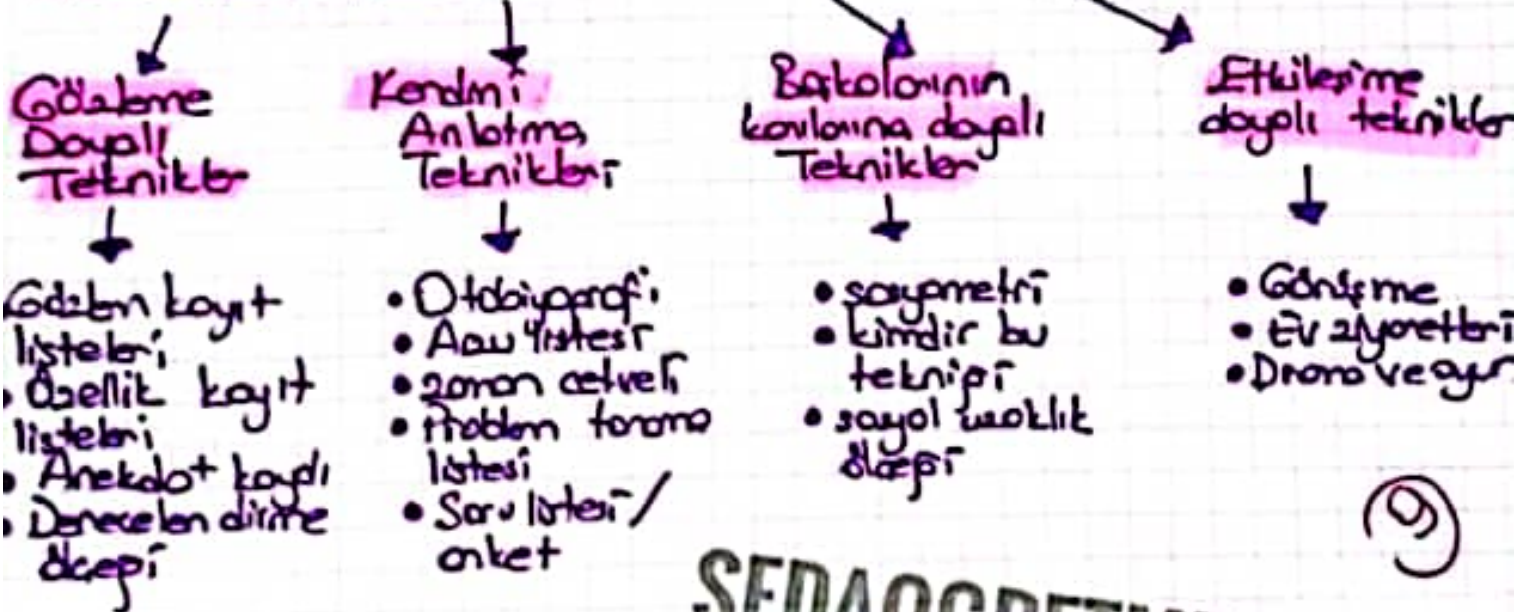 Gözleme
Dayalı
Teknikler
Gözlem kayıt
listeleri
• Özellik kayıt
listeleri
• Anekdot kaydı
• Derecelendirme
ölçeği
Kendini
Anlatma
Teknikleri
• Otobiyografi
• Arzu listesi
• zaman cetveli
• Problem tarama
listesi
• Soru listesi /
anket
Başkalarının
kanılarına dayalı
Teknikler
• sosyometri
• kimdir bu
tekniği
• sosyal uzaklık
ölçeği
Etkileşime
dayalı teknikler
• Görüşme
• Ev ziyaretleri
• Drama ve oyun
9